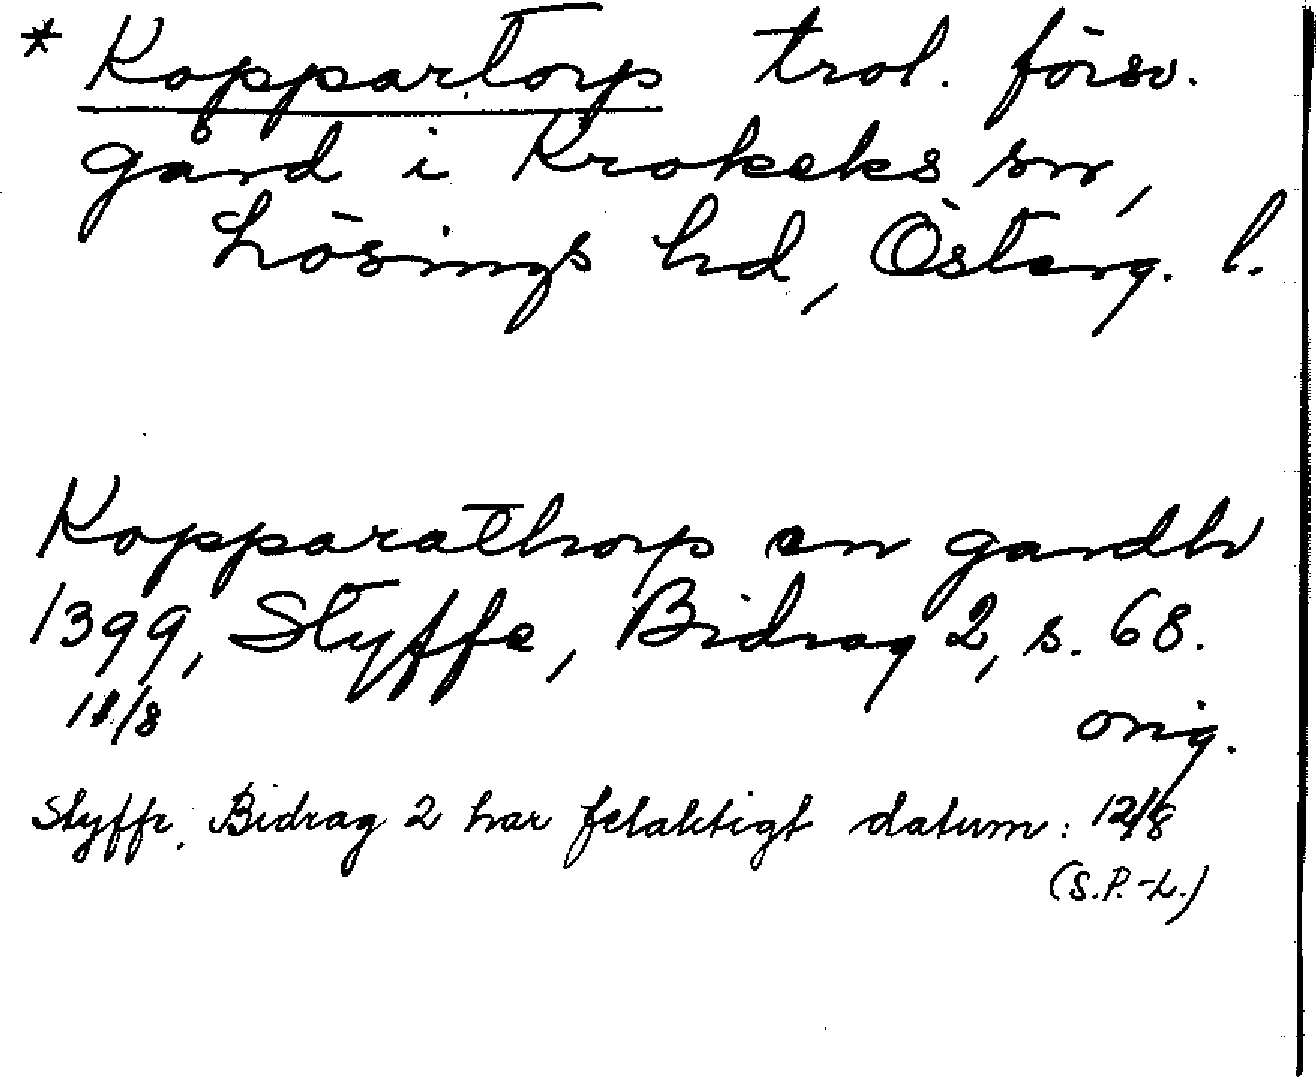 * Koppartorp trol. försv.
gård i Krokeks sn,
Lösings hd, Österg. l.
Kopparathorp en gardh
1399, Styffe, Bidrag 2, s. 68.
11/8 orig.
Styffe, Bidrag 2 har felaktigt datum: 12/8
(S.P.-L.)